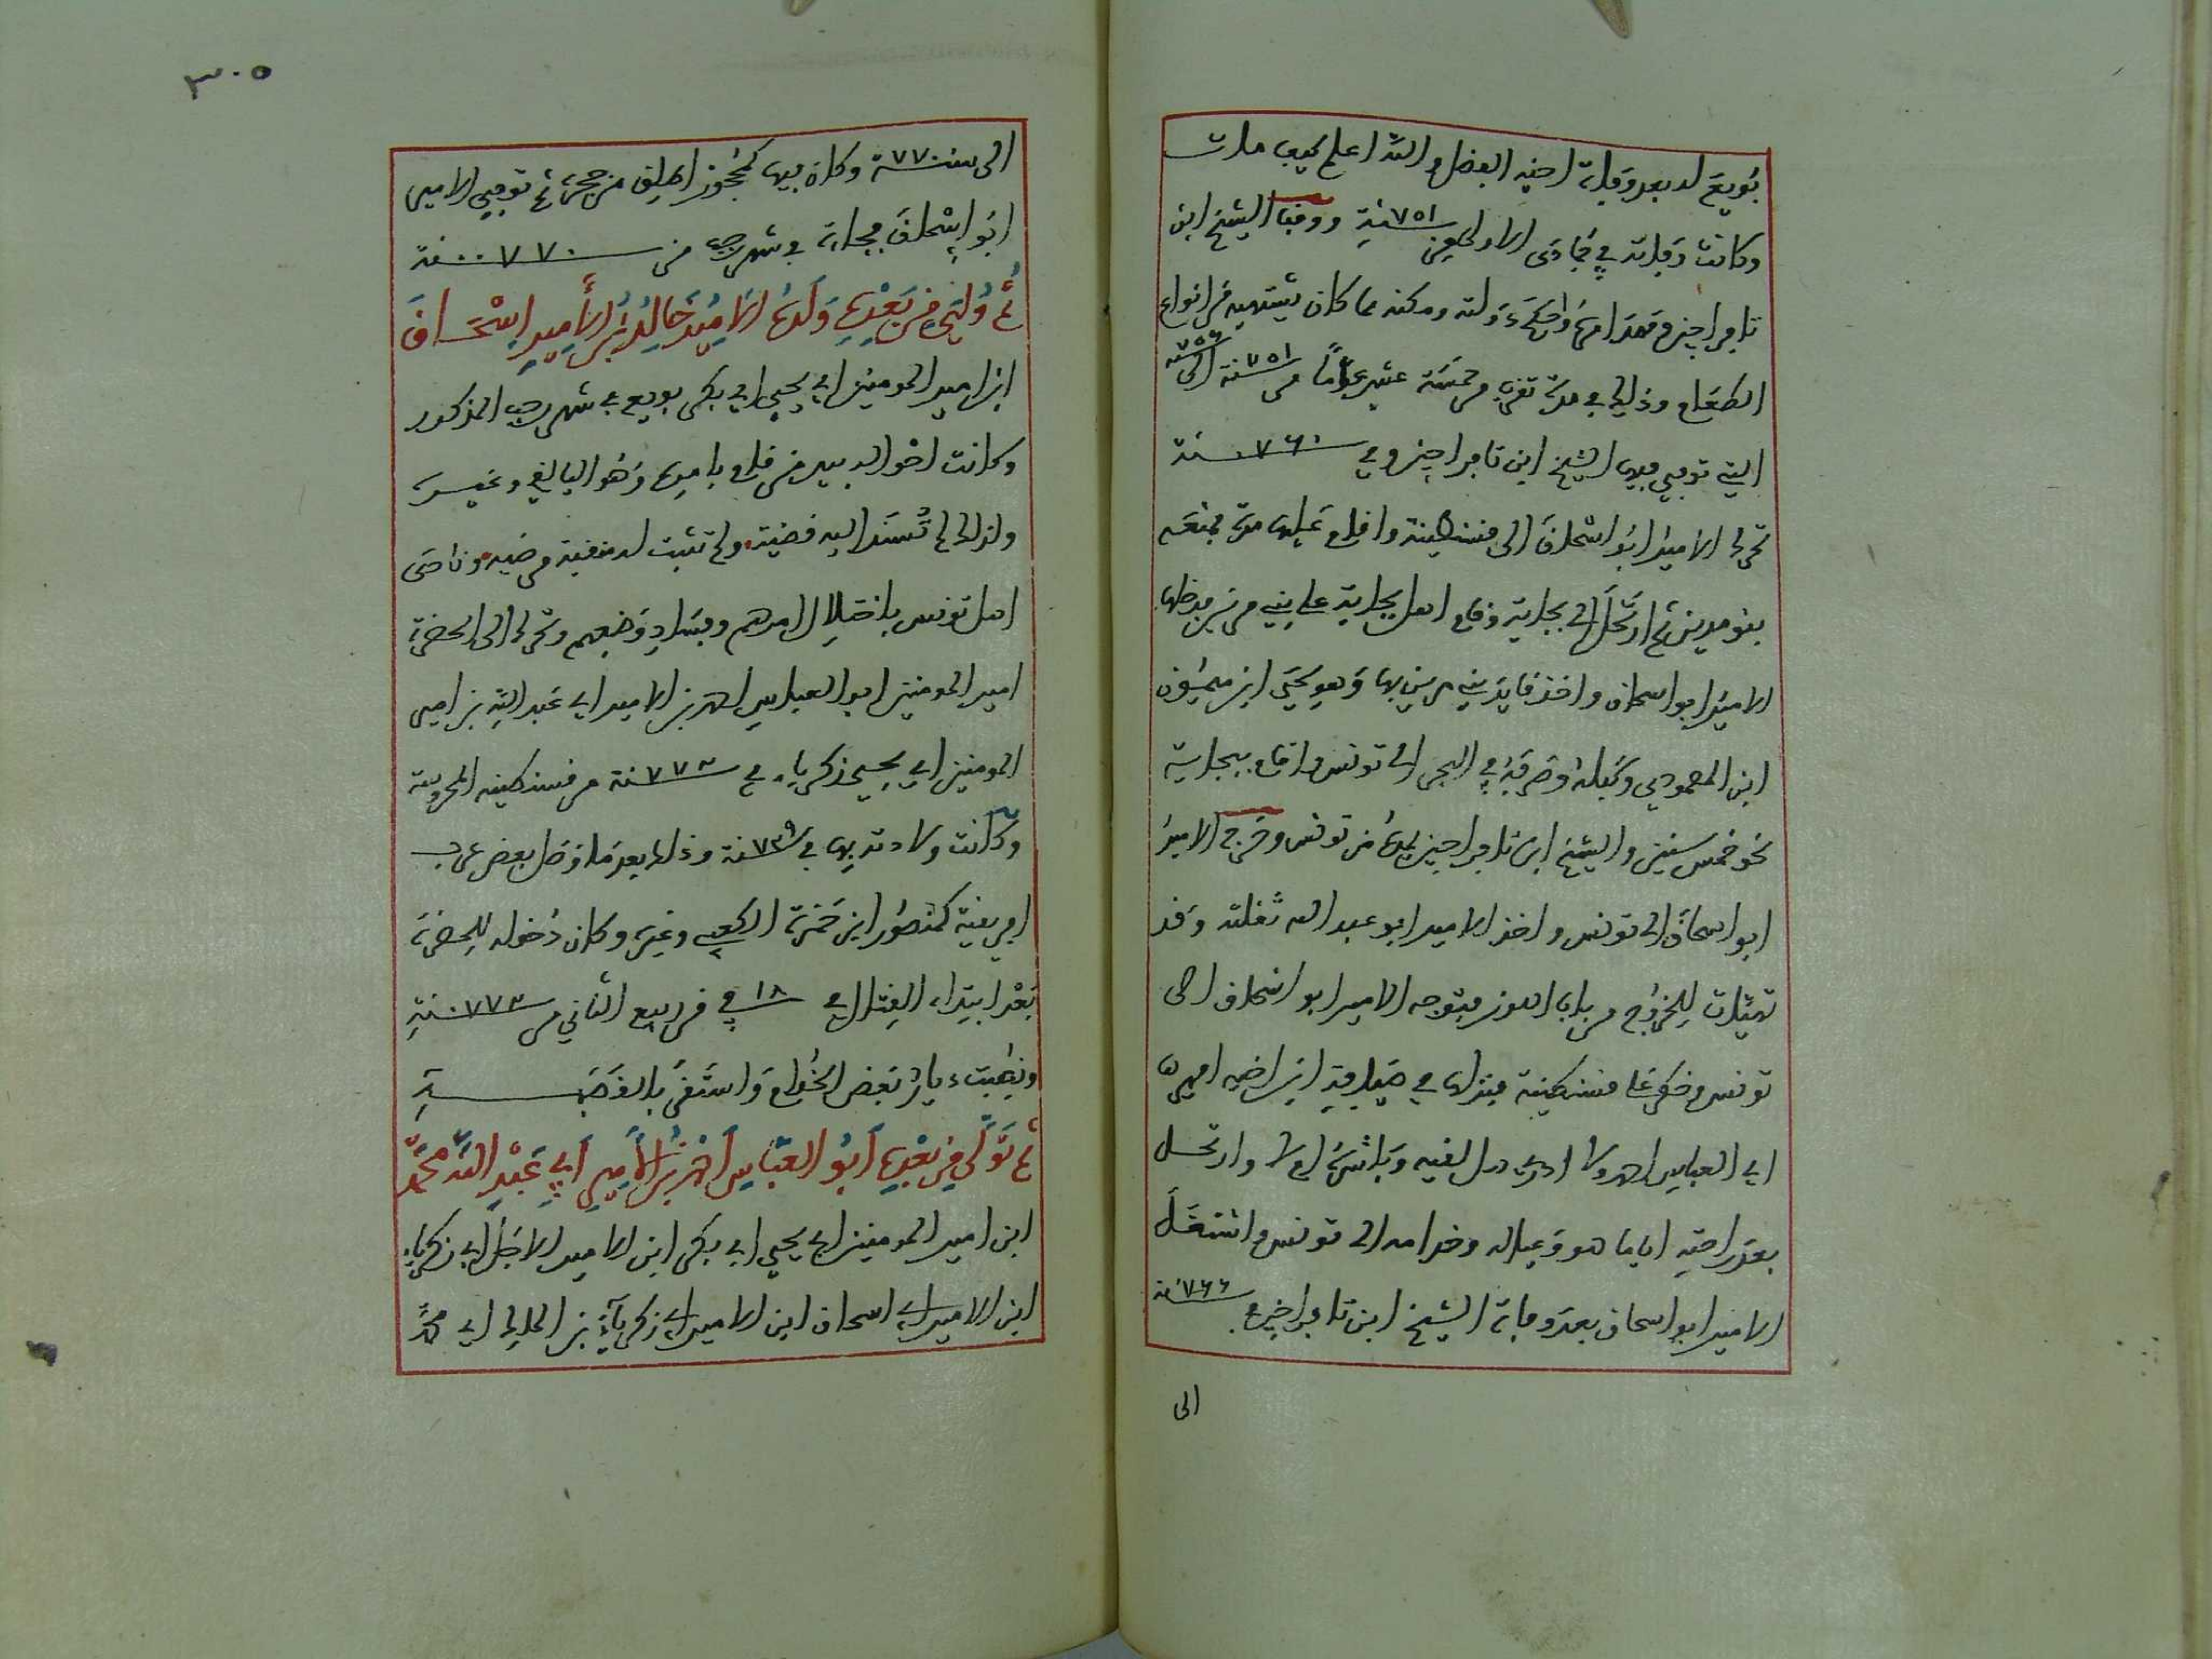 بُويعَ له بعد وفاة اخيه الفضل والله اعلم كيف مات
وكانت وفاته في جمادى الاولى من ٧٥١ سنة ووفيا الشيخ ابن
تافراجين وقعد امره واحكم دولته ومكنه مما كان يشتهيه من انواع
الطعام وذلك في مدة تقرب من خمسة عشر عواما من ٧٥١ سنة الى
التي توفي فيها الشيخ ابن تافراجين وفي ٧٦٠ سنة
تحرك الامير ابو اسحاق الى قسنطينة واقام عليها مدة فمنعه
بنو مرين ثم ارتحل الى بجاية وقام اهل بجاية على بني مرين فدخلها
الامير ابو اسحاق واخذ قايد بني مرين بها وهو يحيى ابن ميمون
ابن المصمودي وكبله وصرفه في البحر الى تونس واقام ببجاية
نحو خمس سنين والشيخ ابن تافراجين يمده من تونس وخرج الامير
ابو اسحاق الى تونس واخذ الامير ابو عبد الله ثقلته وقد
تهيئات للخروج من باب اللوز فتوجه الامير ابو اسحاق الى
تونس وخطر على قسنطينة فنزل في ضيافة ابن اخيه امير
ابي العباس احمد ولا ادري هل لقيه وباشره ام لا وارتحل
بعد راحته اياما هو وعياله وخدامه الى تونس واشتغل
الامير ابو اسحاق بعد وفاة الشيخ ابن تافراجين ٧٦٦ سنة
الى
٣٠٥
الى سنة ٧٧٠ وكان فيها كمحجوز اطلق من حجره ثم توفي الامير
ابو إسحاق فجاة في شهر رجب من ٧٧٠ سنة
ثم وُلّي من بعده ولده الامير خالد بن الأمير إسحاق
ابن امير المومنين ابي يحيى ابي بكر بويع في شهر رجب المذكور
وكانت احواله بيد من قام بامره وهو اليالفي وغيره
ولذلك لم تُسند اليه قضية ولم تثبت له منقبة مرضية ونادى
اهل تونس باختلال امرهم وفساد وضعهم وتحرك الى الحضرة
امير المومنين ابو العباس احمد بن الامير ابي عبد الله بن امير
المومنين ابي يحيى زكرياء في ٧٧٢ سنة من قسنطينة المحروسة
وكانت ولادته بها في ٧٢٩ سنة وذلك بعد ما وصل بعض عرب
افريقية كمنصور ابن حمزة الكعبي وغيره وكان دخوله للحضرة
بعد ابتداء القتال في ١٨ في من ربيع الثاني من ٧٧٢ سنة
ونهبت ديار بعض الخدام واستقر بالقصبة
ثم تولّى من بعده أبو العبّاس أحمد بن الأمير أبي عبد الله محمّد
ابن امير المومنين ابي يحيى ابي بكر ابن الامير الاجل ابي زكرياء
ابن الامير ابي اسحاق ابن الامير ابي زكرياء بن الملك ابي محمد